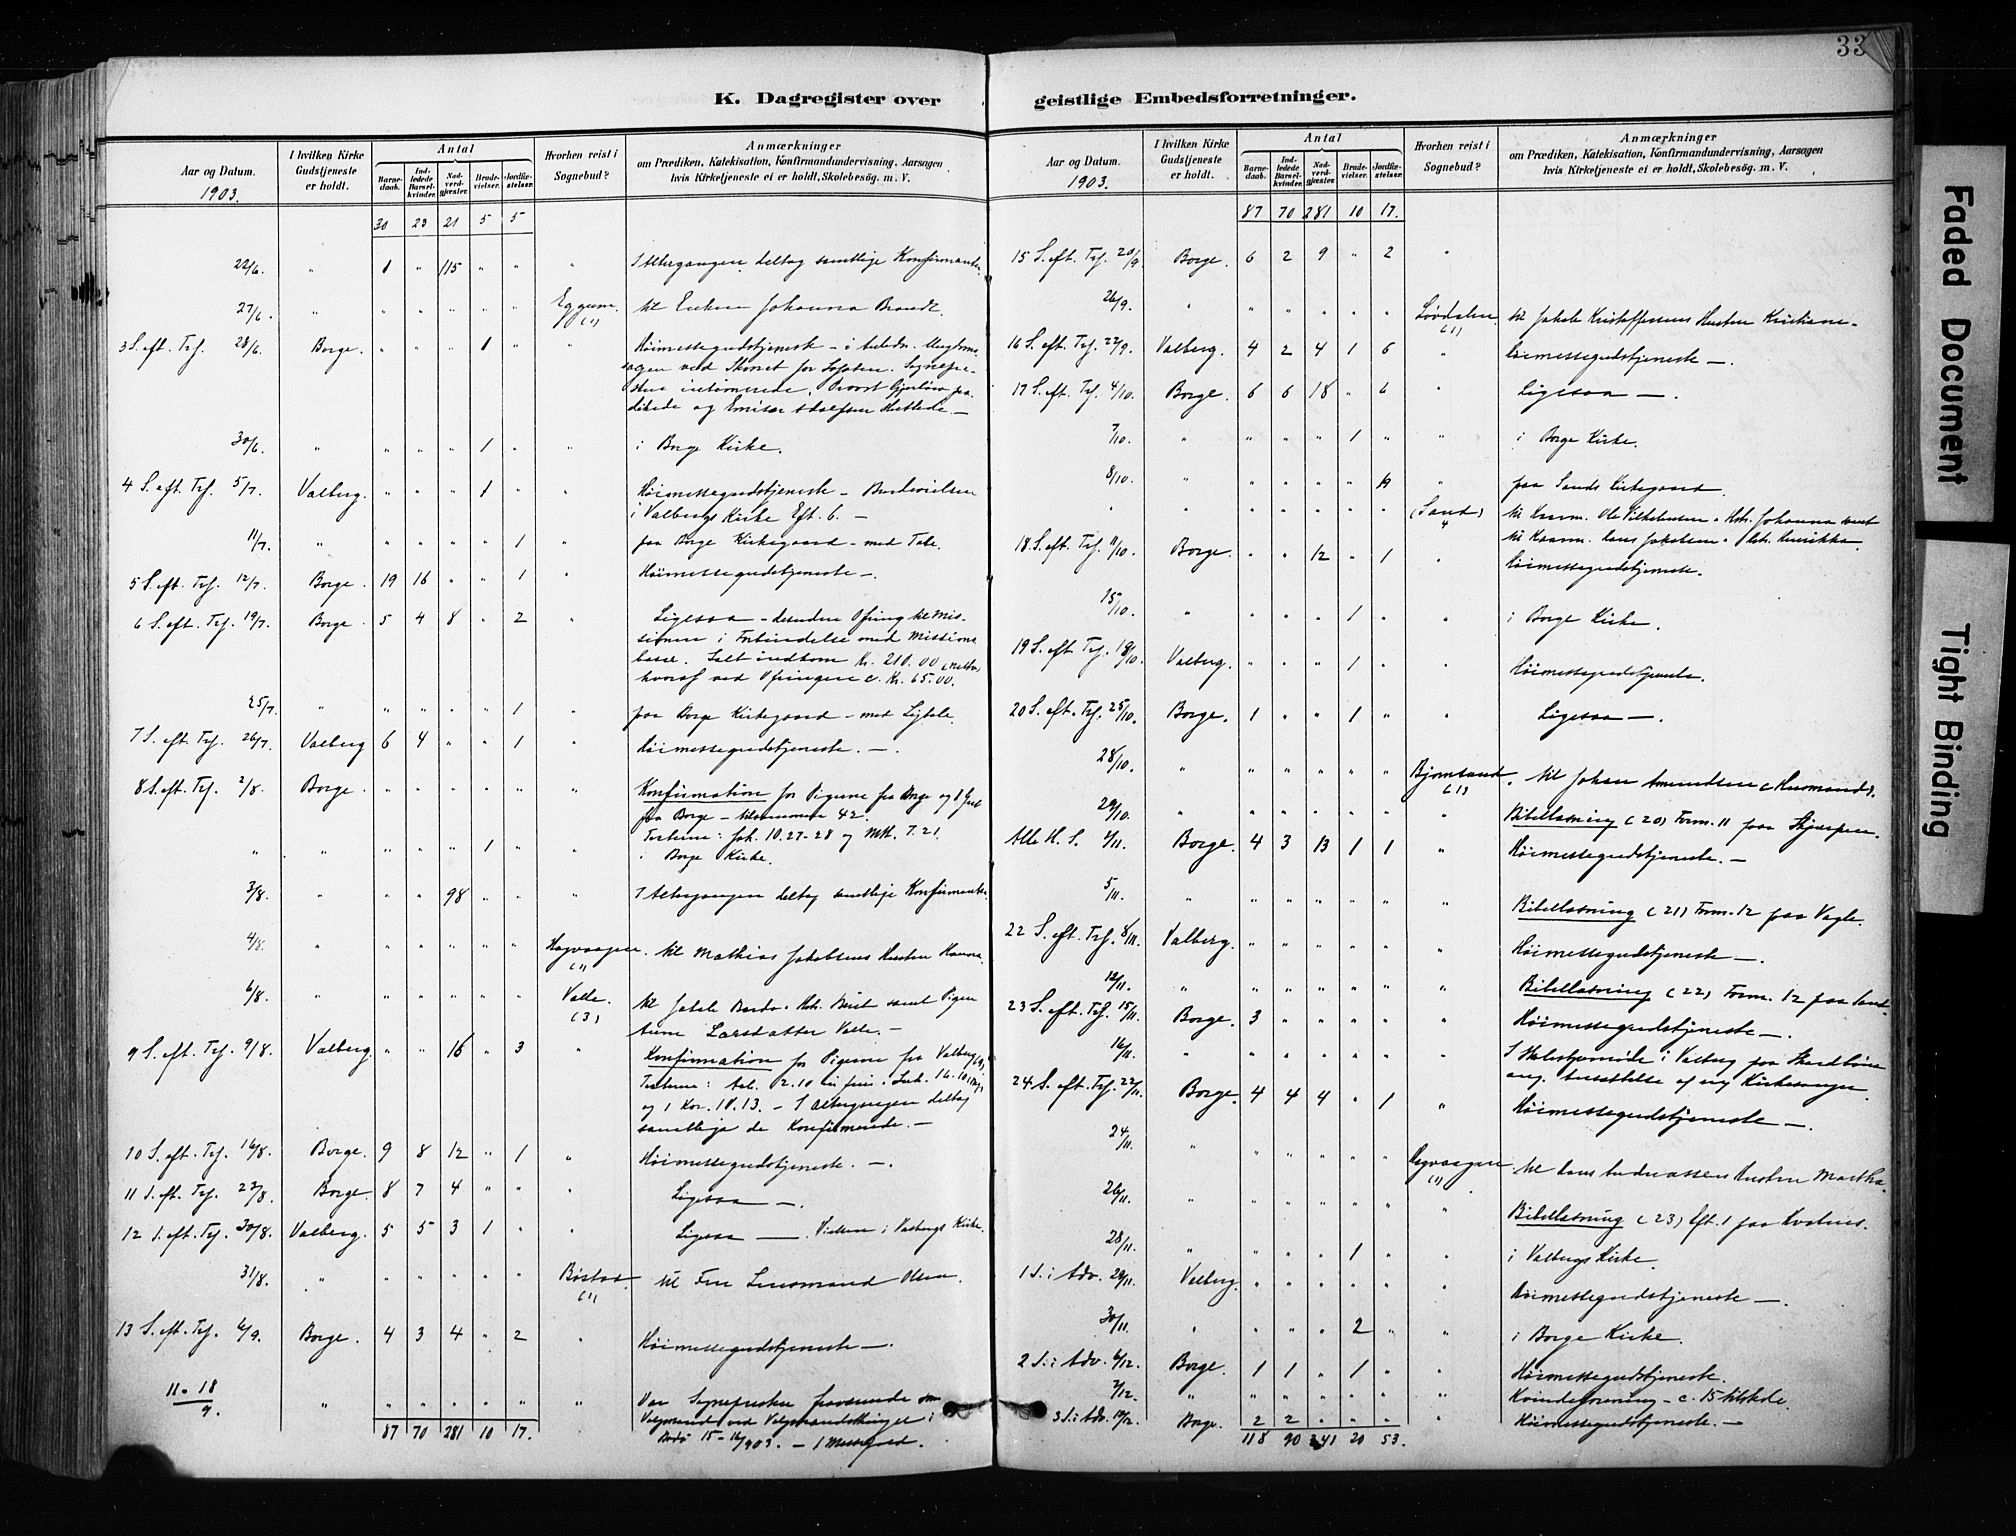 33
K. Dagregister over geistlige Embedsforretninger.
Aar og Datum.
1903.
I hvilken Kirke Gudstjeneste er holdt.
Antal
Barnedaab.
Indledede Barselkvinder.
Nadverdgjæster.
Brudevielser.
Jordfæstelser.
Hvorhen reist i Sognebud?
Anmærkninger
om Prædiken, Katekisation, Konfirmandundervisning, Aarsagen
hvis Kirketjeneste ei er holdt, Skolebesög. m. V.
30 23 21 5 5
22/6. " 1 " 115 " " " I Altergangen deltog samtlige Konfirmander
27/6. " " " " " " Eggum (1) til Enken Johanna Brandt.
3 S. eft. Tref. 28/6. Borge. " " " 1 " " Höimessegudstjeneste – i
30/6. " " " " 1 " " i Borge Kirke.
4 S. eft. Tref. 5/7. Valberg. " " " 1 " " Höimessegudstjeneste – Brudevielsen
i Valbergs Kirke Eft. 6. –
11/7. " " " " " 1 " paa Borge Kirkegaard – med Tale.
5 S. eft. Tref. 12/7. Borge. 19 16 " " 1 " Höimessegudstjeneste –.
6 S. eft. Tref. 19/7. Borge. 5 4 8 " 2 " Ligesaa – desuden Ofring til Missionen
i Forbindelse med Missions
Kr. 210.00
hvoraf ved Ofringen c. Kr. 65.00.
25/7. " " " " " 1 " paa Borge Kirkegaard – med Ligtale.
7 S. eft. Tref. 26/7. Valberg 6 4 " " 1 " Höimessegudstjeneste. –.
8 S. eft. Tref. 2/8. Borge. " " " " " " Konfirmation for Pigerne fra Borge og 1 Gut
fra Borge – tilsammen 42.
Texterne: Joh. 10.27-28 og Mth. 7.21.
" " " " " 1 " " i Borge Kirke.
3/8. " " " 98 " " " I Altergangen deltog samtlige Konfirmanter.
4/8. " " " " " " Hagvaagen. (1) til Mathias Jakobsens Hustru Hanna
6/8. " " " " " " Valle. (3) til Jakob samt Pigen
Larsdatter Valle. –
9 S. eft. Tref. 9/8. Valberg. " " 16 " 3 " Konfirmation for Pigerne fra Valberg
og 1 Kor. 10.13. – I Altergangen deltog
samtlige de Konfirmerede. –
10 S. eft. Tref. 16/8. Borge. 9 8 12 " 1 " Höimessegudstjeneste. –.
11 S. eft. Tref. 23/8. Borge. 8 7 4 " " " Ligesaa –.
12 S. eft. Tref. 30/8. Valberg. 5 5 3 1 " " Ligesaa –. Vielsen i Valbergs Kirke.
31/8. " " " " " " Böstad (1) til Fru Lensmand Olsen.
13 S. eft. Tref. 6/9. Borge. 4 3 4 " 2 " Höimessegudstjeneste –.
11-18/9. " " " " " " " Var Sognepresten fraværende som
Valgmand ved Valgmandsthinget i
Bodö 15-16/9 03. –
87 70 281 10 17.
Aar og Datum.
1903.
I hvilken Kirke Gudstjeneste er holdt.
Antal
Barnedaab.
Indledede Barselkvinder.
Nadverdgjæster.
Brudevielser.
Jordfæstelser.
Hvorhen reist i Sognebud?
Anmærkninger
om Prædiken, Katekisation, Konfirmandundervisning, Aarsagen
hvis Kirketjeneste ei er holdt, Skolebesög. m. V.
87 70 281 10 17.
15 S. eft. Tref. 20/9. Borge. 6 2 9 " 2 "
26/9. " " " " " " Lövdalen (1) til Jakob Kristoffersens Hustru Kristiane.
16 S. eft. Tref. 27/9. Valberg. 4 2 4 1 6 " Höimessegudstjeneste –.
17 S. eft. Tref. 4/10. Borge. 6 6 18 " 6 " Ligesaa –.
7/10. " " " " 1 " " i Borge Kirke.
8/10. " " " " " " paa Sands Kirkegaard.
" " " " " " (Sand) 4 til Kaarm. Ole Vilhelmsen Johanna samt
til Kaarm. Hans Jakobsen
18 S. eft. Tref. 11/10. Borge. " " 12 " 1 " Höimessegudstjeneste.
15/10. " " " " 1 " " i Borge Kirke.
19 S. eft. Tref. 18/10. Valberg. " " " 1 " " Höimessegudstjeneste.
20 S. eft. Tref. 25/10. Borge. 1 " " 1 " " Ligesaa –.
28/10. " " " " " " Bjornsand. (1) til Johan Amundsen
29/10. " " " " " " " Bibellæsning (20) Form. 11 paa
Alle H. S. 1/11. Borge. 4 3 13 1 1 " Höimessegudstjeneste. –
5/11. " " " " " " " Bibellæsning (21) Form. 12 paa Vagle.
22 S. eft. Tref. 8/11. Valberg. " " " " " " Höimessegudstjeneste –.
12/11. " " " " " " " Bibellæsning (22) Form. 12 paa Sand.
23 S. eft. Tref. 15/11. Borge. 3 " " " " " Höimessegudstjeneste –.
16/11. " " " " " " " i Valberg paa
ang. Ansættelse af ny Kirkesanger.
24 S. eft. Tref. 22/11. Borge. 4 4 4 " 1 " Höimessegudstjeneste –.
24/11. " " " " " " Hagvaagen (1) til Hans Andreassens Hustru Martha.
26/11. " " " " " " " Bibellæsning (23) Eft. 1 paa
28/11. " " " " 1 " " i Valbergs Kirke.
1 S. i Adv. 29/11. Valberg. " " " " " " Höimessegudstjeneste –.
30/11. " " " " 2 " " i Borge Kirke.
2 S. i Adv. 6/12. Borge. 1 1 " 1 " " Höimessegudstjeneste.
7/12. " " " " " " " Kvindeforening – c. 15 tilstede.
3 S. i Adv. 13/12. Borge. 2 2 " " " " Höimessegudstjeneste. –
118 90 341 20 53.
Faded Document
Tight Binding